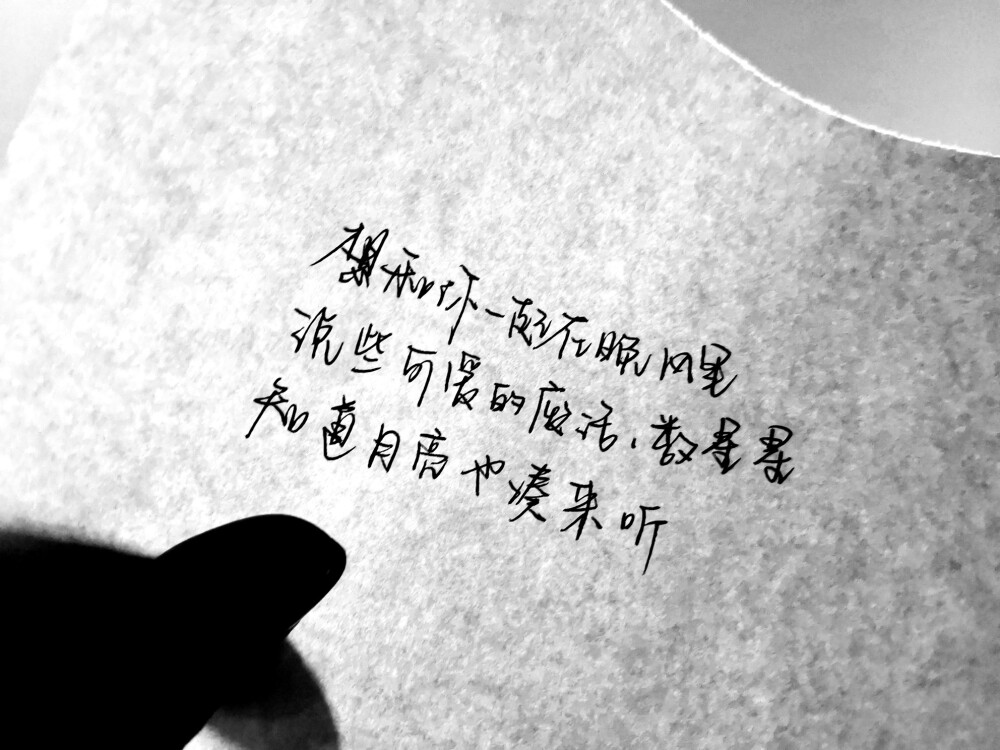 想和你一起在晚风里
说些可爱的废话,数星星
知道月亮也凑来听